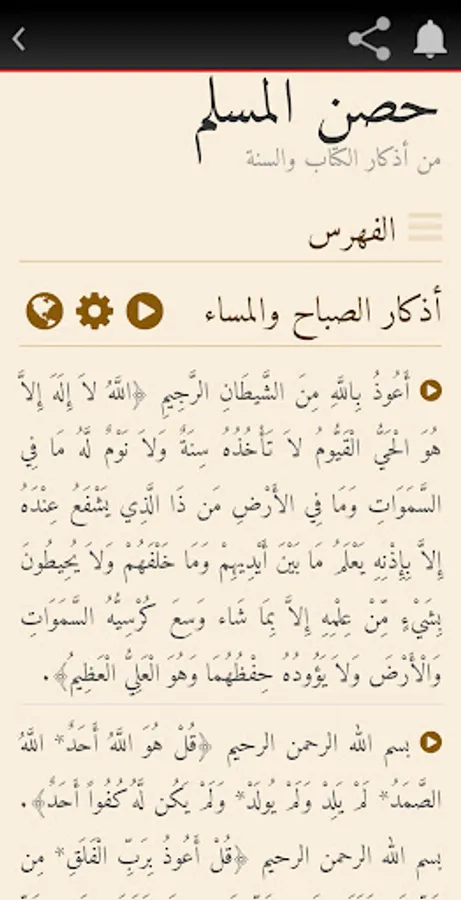 حصن المسلم
من أذكار الكتاب والسنة
الفهرس
أذكار الصباح والمساء
أَعُوذُ بِاللَّهِ مِنَ الشَّيطَانِ الرَّجِيمِ ﴿اللَّهُ لاَ إِلَهَ إِلاَّ
هُوَ الْحَيُّ الْقَيُّومُ لاَ تَأْخُذُهُ سِنَةٌ وَلاَ نَوْمٌ لَّهُ مَا فِي
السَّمَوَاتِ وَمَا فِي الأَرْضِ مَن ذَا الَّذِي يَشْفَعُ عِنْدَهُ
إِلاَّ بِإِذْنِهِ يَعْلَمُ مَا بَيْنَ أَيْدِيهِمْ وَمَا خَلْفَهُمْ وَلاَ يُحِيطُونَ
بِشَيْءٍ مِّنْ عِلْمِهِ إِلاَّ بِمَا شَاء وَسِعَ كُرْسِيُّهُ السَّمَوَاتِ
وَالْأَرْضَ وَلاَ يَؤُودُهُ حِفْظُهُمَا وَهُوَ الْعَلِيُّ الْعَظِيمُ﴾.
بسم الله الرحمن الرحيم ﴿قُلْ هُوَ اللَّهُ أَحَدٌ* اللَّهُ
الصَّمَدُ* لَمْ يَلِدْ وَلَمْ يُولَدْ* وَلَمْ يَكُن لَّهُ كُفُواً أَحَدٌ﴾.
بسم الله الرحمن الرحيم ﴿قُلْ أَعُوذُ بِرَبِّ الْفَلَقِ* مِن